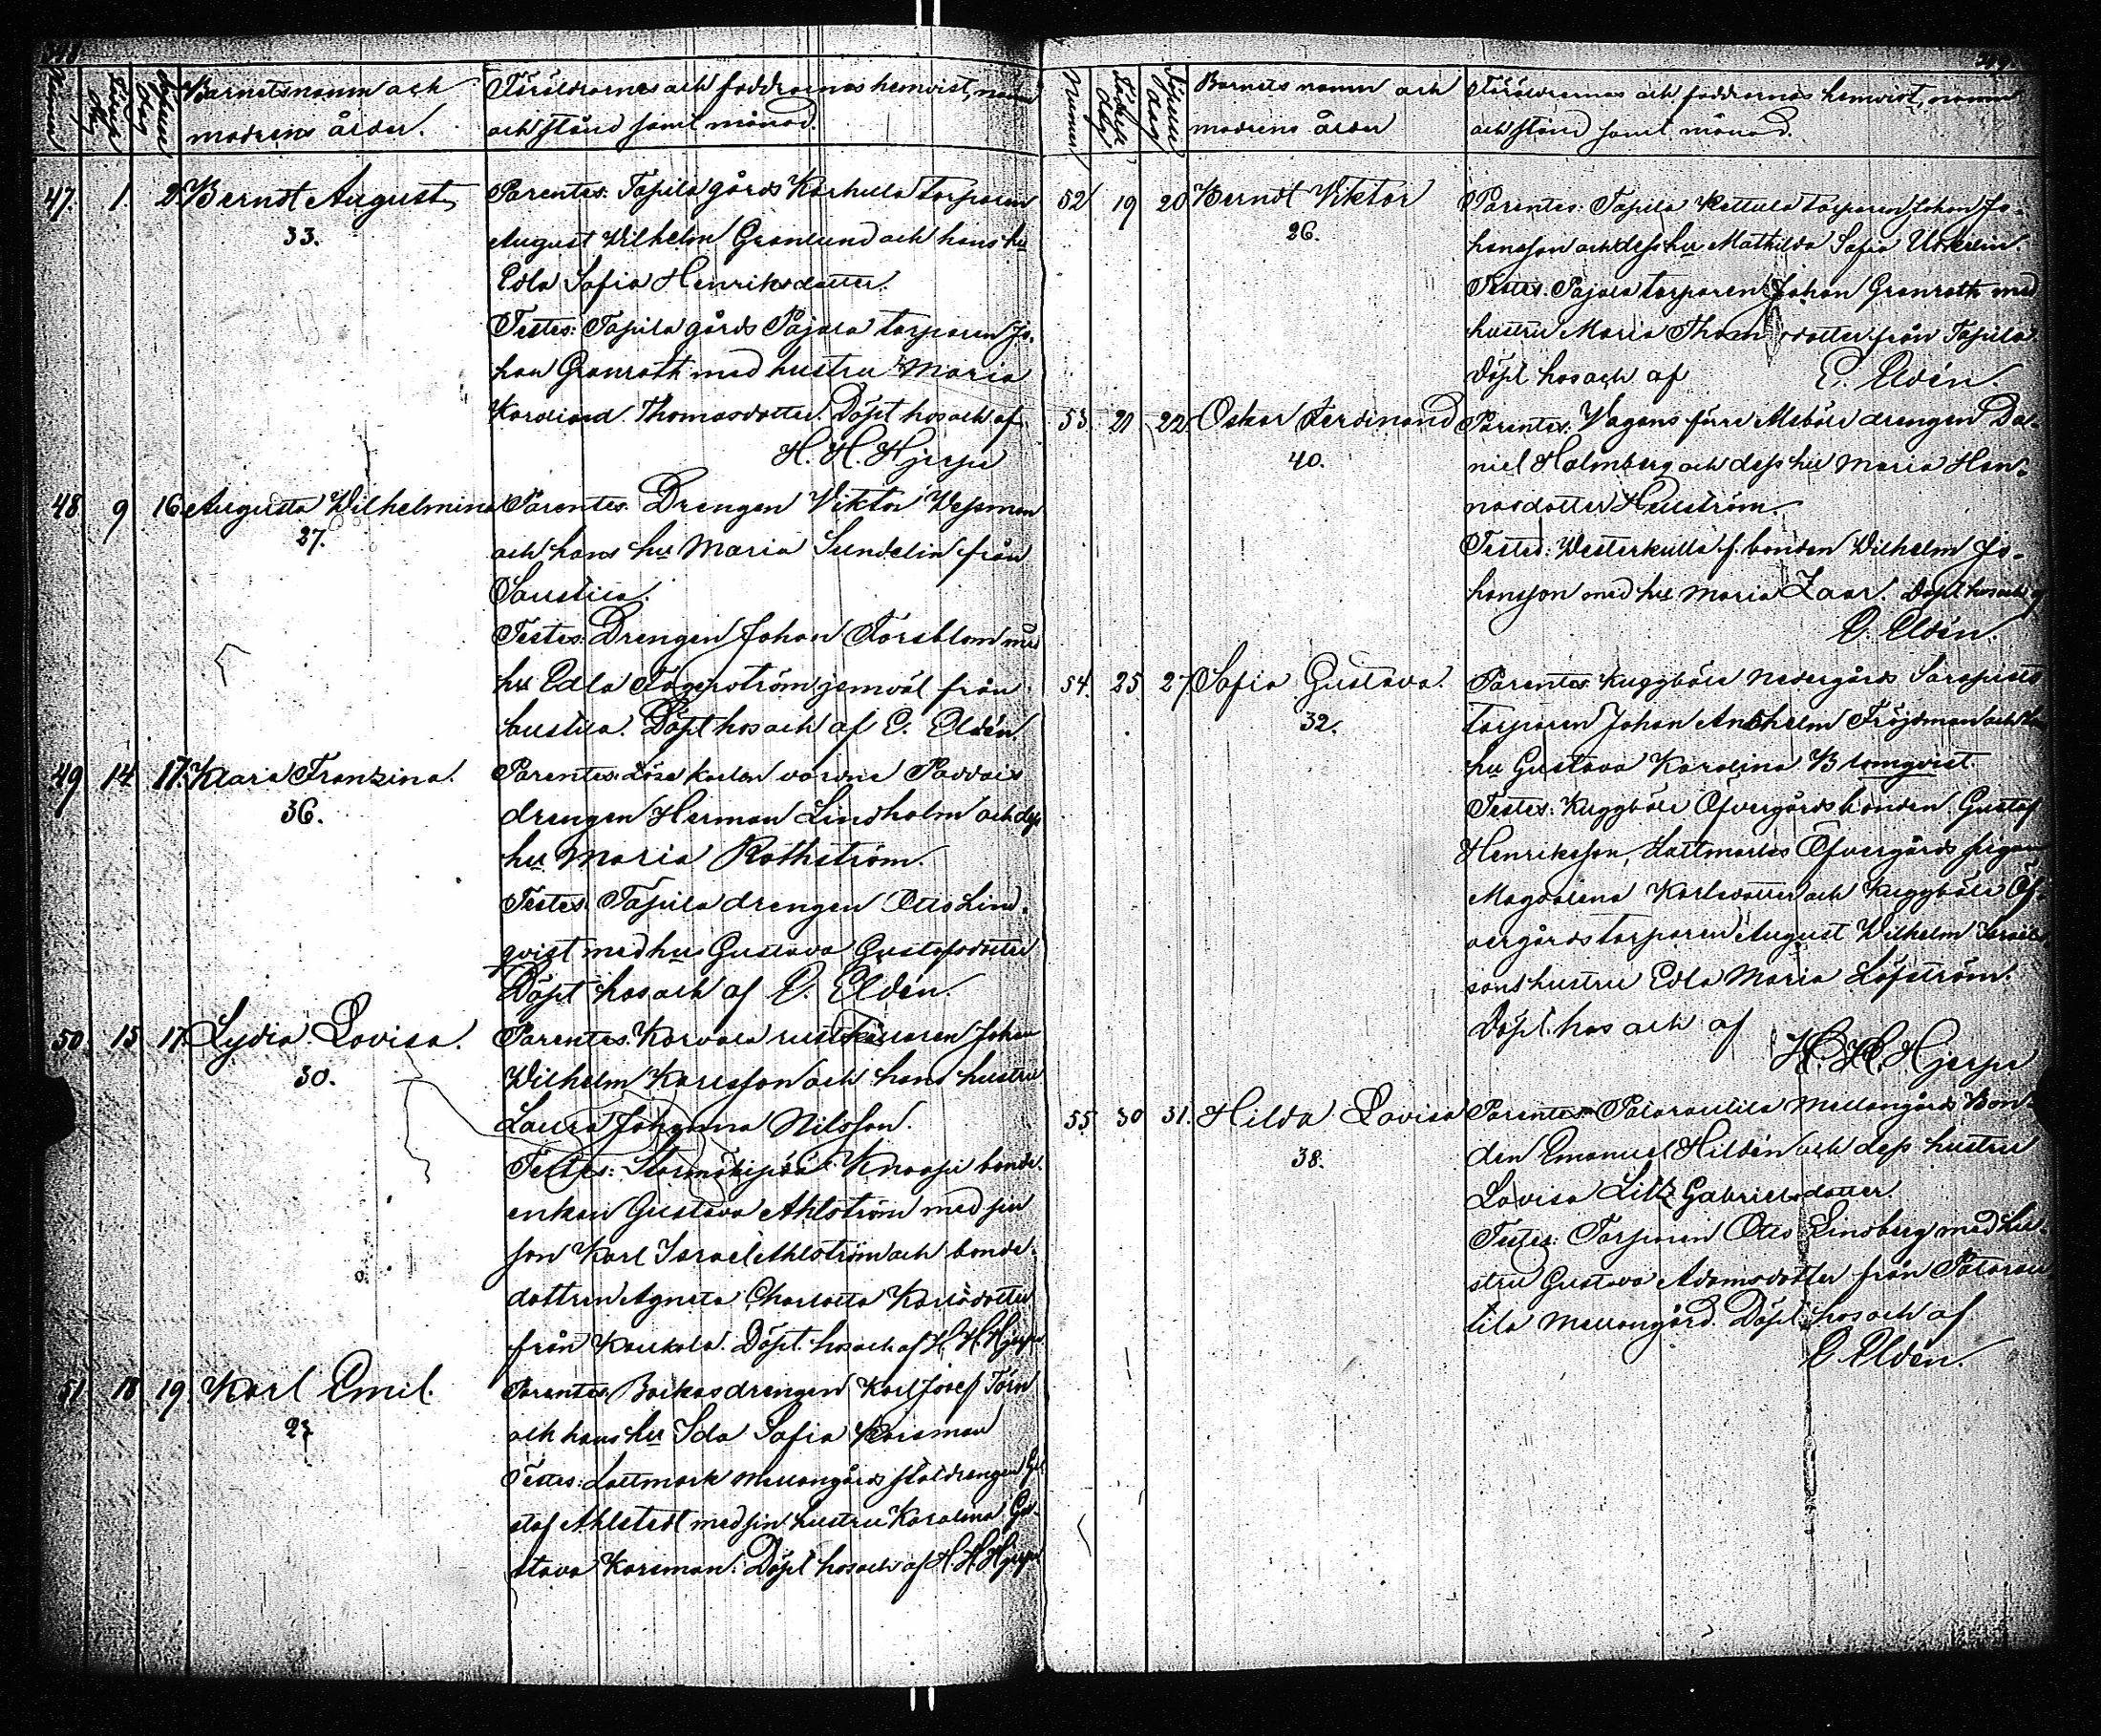 Nummer
Födelse dag
Döpelse dag
Barnets namn och
modrens ålder.
Föräldrarnes och faddrarnas hemvist, namn
och stånd samt månad.
47. 1. 2 Berndt August
33.
Parentes: Tapila gårds Karhulla torparen
August Wilhelm Granlund och hans hu
Edla Sofia Henriksdotter.
Testes: Tapila gårds Pajala torparen Jo-
han Granroth med hustru Maria
Thomasdotter. Döpt hos och af
H. H. Hjerpe
48 9 16 Augusta Wilhelmina
27.
Parentes. Drengen Viktor Wessman
och hans hu Maria Sundelin från
Saustila.
Testes: Drengen Johan Forsblom med
hu Edla Fagerström jemväl från
Saustila. Döpt hos och af E. Eldén.
49 14 17. Klara Franzina.
36.
Parentes: Lösa karlen varande Paddais
drengen Herman Lindholm och dess
hu Maria Rothström.
Testes. Tapila drengen Otto Lind-
qvist med hu Gustava Gustafsdotter
Döpt hos och af E. Eldén.
50. 15 17. Lydia Lovisa.
30.
Parentes. Korvala rusthållaren Johan
Wilhelm Karlsson och hans hustru
Laura Johanna Nilsson.
Testes: Knaapi bonde-
enkan Gustava Ahlström med sin
son Karl Israel Ahlström och bonde-
dottren Agneta Charlotta Karlsdotter
från Koukola. Döpt. hos och af H. H. Hjerpe
51 18. 19. Karl Emil.
27
Parentes. drengen Karl Josef Törn
och hans hu Ida Sofia Karsman
Testes: Lattmark Mellangårds staldrengen Gu-
staf Ahlstedt med sin hustru Karolina Gu-
stava Karsman. Döpt hos och af H. H. Hjerpe
Nummer
Födelse dag
Döpelse dag
Barnets namn och
modrens ålder
Föräldrarnas och faddrarnas hemvist, namn
och stånd samt månad.
52 19 20 Berndt Viktor
26.
Parentes: Tapila Kettula torparen Johan Jo-
hansson och dess hu Mathilda Sofia
Testes. Pajala torparen Johan Granroth med
hustru Maria Thom dotter från Tapila.
Döpt hos och af E. Eldén.
53. 21 22. Oskar Ferdinand
40.
Parentes. Vagans drengen Da-
niel Holmberg och dess hu Maria Han-
nasdotter Hellström.
Testes: Westerkulla f. bonden Wilhelm Jo-
hansson med hu Maria Zaar. Döpt hos och af
E. Eldén.
54. 25 27 Sofia Gustava.
32.
Parentes: Kuggböle Nedergårds Sarapisto
torparen Johan Anshelm Fröjdman och hans
hu Gustava Karolina Blomqvist.
Testes: Kuggböle Öfvergårds bonden Gustaf
Henriksson, Lattmarks Öfvergårds pigan
Magdalena Karlsdotter och Kuggböle Öf-
vergårds torparen August Wilhelm Israels-
sons hustru Edla Maria Löfström.
Döpt. hos och af
H. H. Hjerpe
55. 30 31. Hilda Lovisa
38.
Parentes. Mellangårds Bon-
den Emanuel Hildén och dess hustru
Lovisa Gabrielsdotter.
Testes: Torparen Otto Lindberg med hu-
stru Gustava Adamsdotter från
Mellangård. Döpt hos och af
E Eldén.